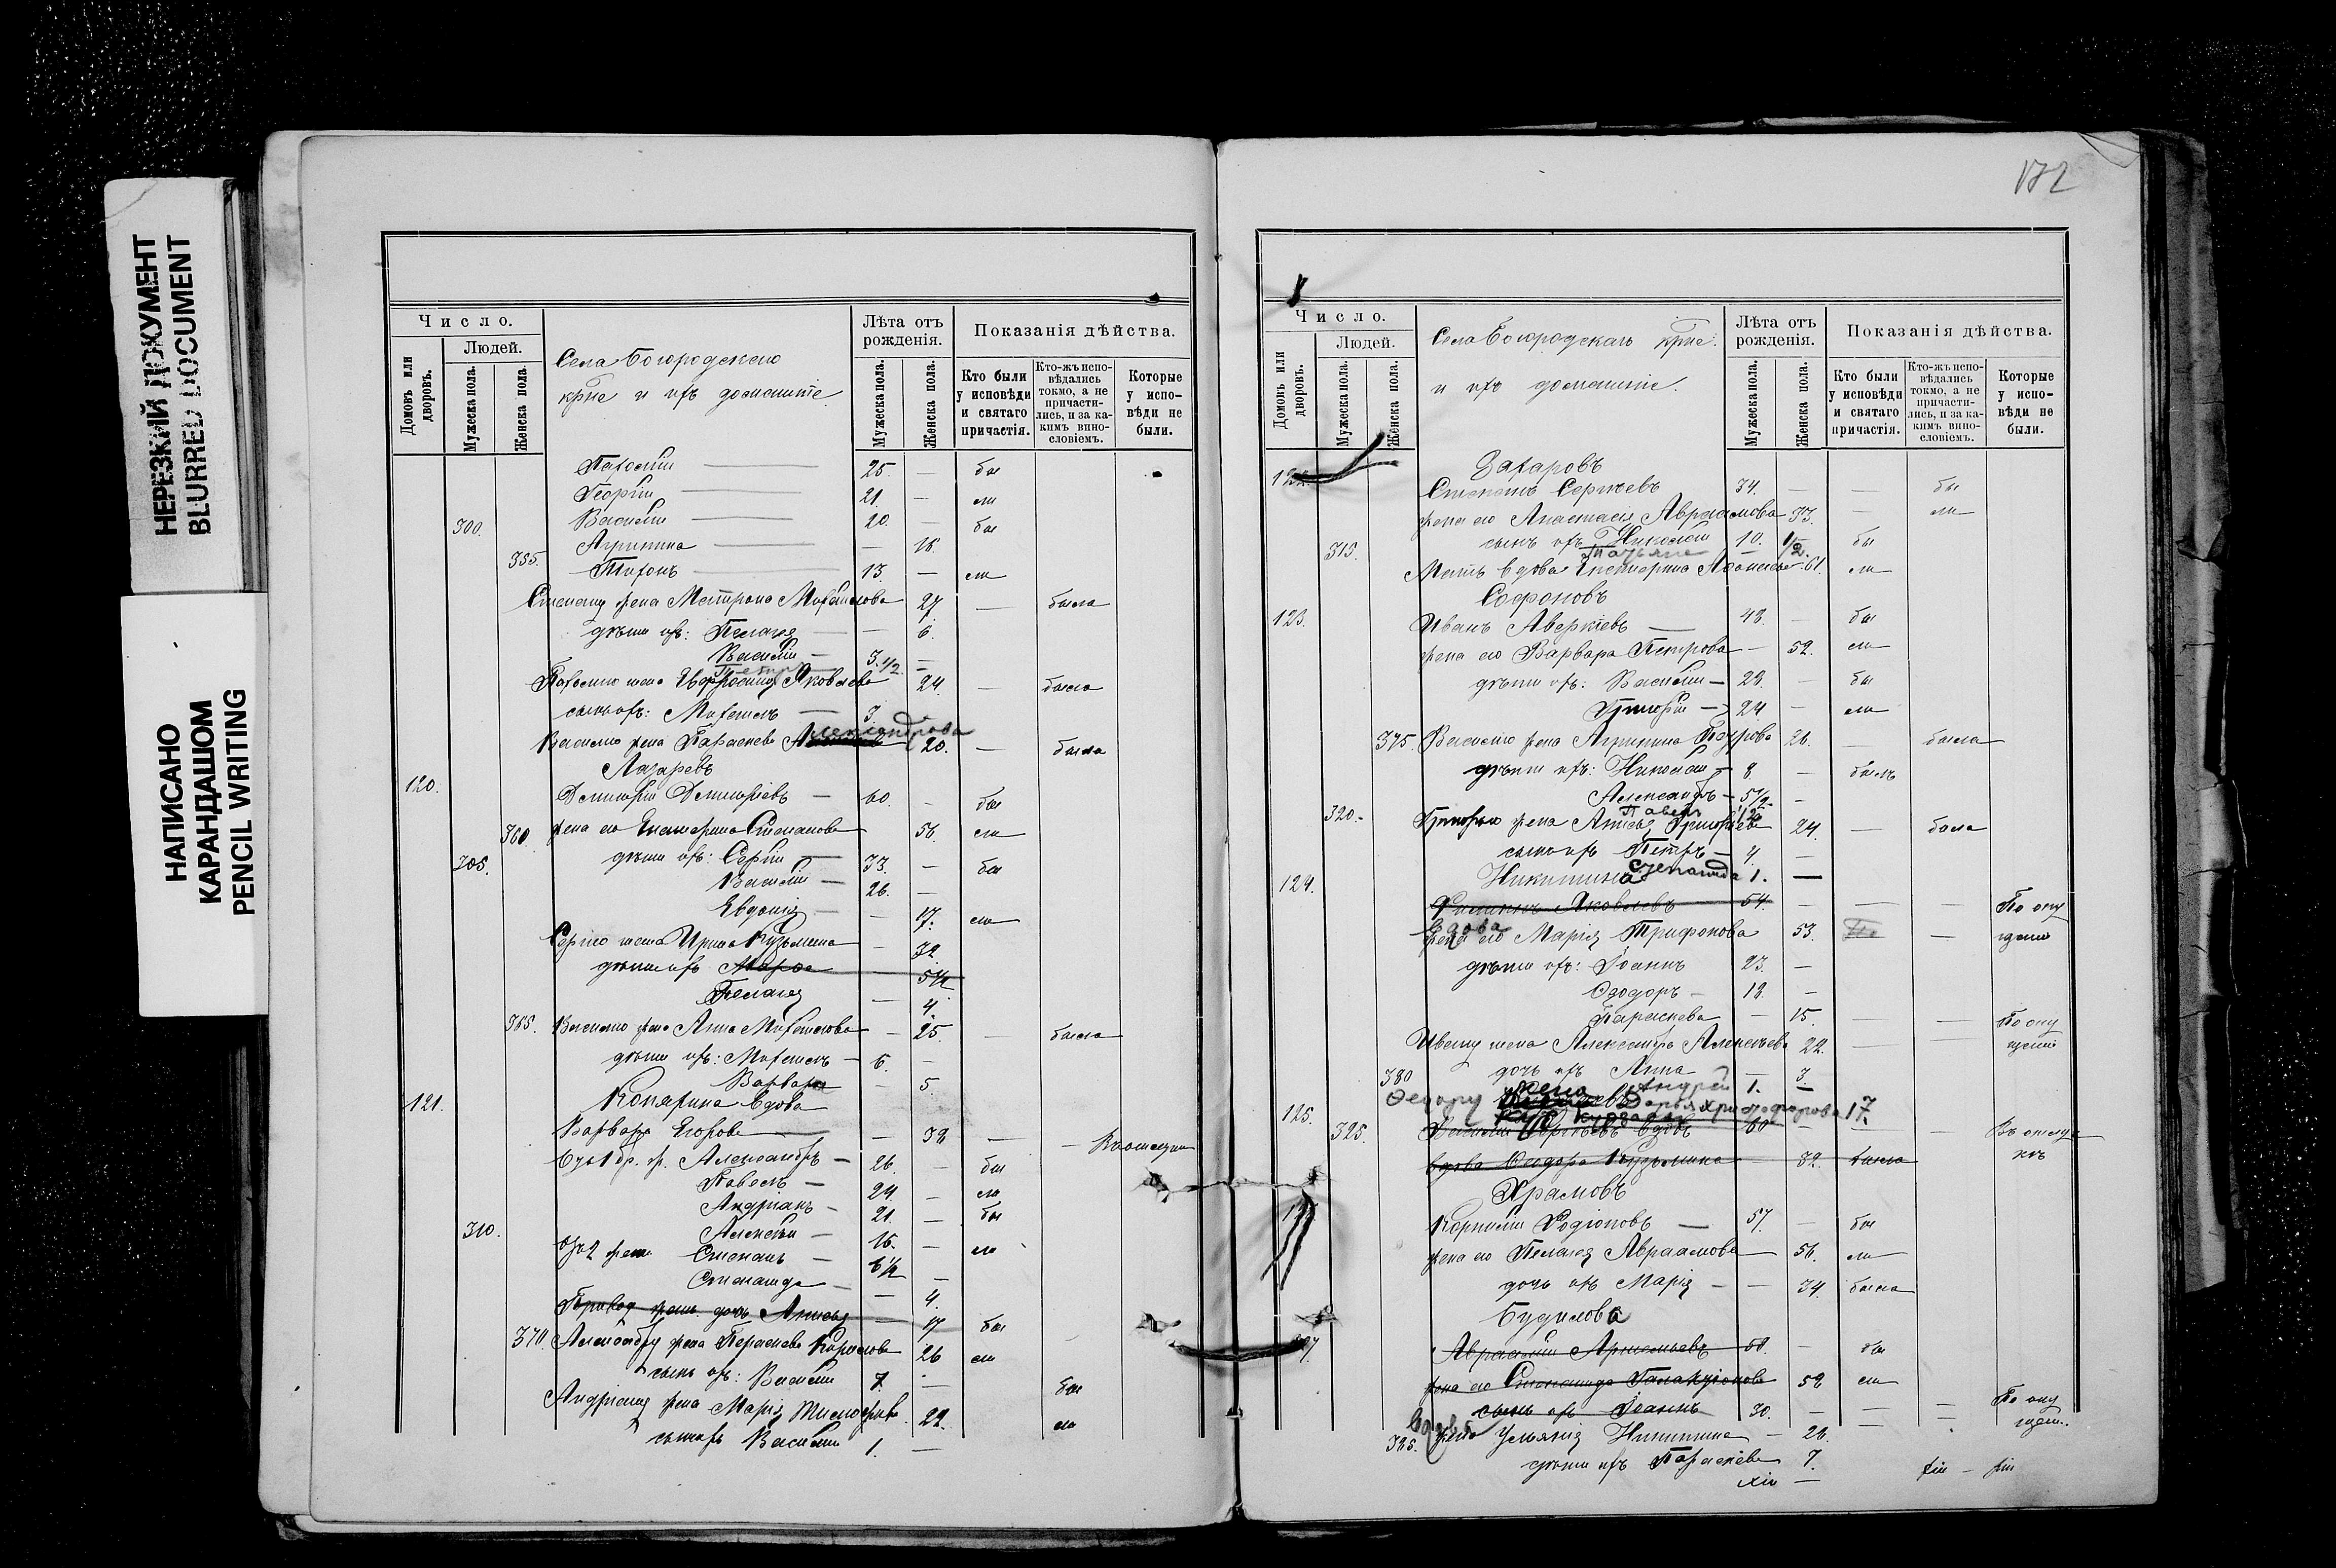 НЕРЕЗКИЙ ДОКУМЕНТ
BLURRED DOCUMENT
НАПИСАНО
КАРАНДАШОМ
PENCIL WRITING
Число.
Людей.
Домовъ или дворовъ.
Мужеска пола.
Женска пола.
Села Богородскаго
крне и ихъ домашніе.
Лѣта отъ рожденія.
Мужеска пола.
Женска пола.
Показанія дѣйства.
Кто были у исповѣди и святаго причастія.
Кто-жъ исповѣдались токмо, а не причастились, и за какимъ винословіемъ.
Которые у исповѣди не были.
Пахомій 25. — бы
Георгій 21. — ли
300. Василій 20. — бы
Агрипина — 16.
355. Тихонъ 13. — ли
Степану жена Матрона Михайлова 27 — была
дѣти ихъ: Пелагея — 6.
Василій — 3. —
Петръ 1/2
Пахомію жена Евфросинія Яковлева 24. — была
сынъ ихъ: Михаилъ — 3.
Василію жена Параскева Александрова 20. — была
Лазаревъ
120. Димитрій Димитріевъ — 60. — бы
360. жена его Екатерина Степанова 56. ли
305. дѣти ихъ: Сергій — 33. — бы
Василій — 26. —
Евдокія — 17. ли
Сергію жена Ирина Кузьмина — 32
дѣти ихъ Марѳа — 5 1/2
Пелагея — 4.
365. Василію жена Анна Михайлова — 25. — была
дѣти ихъ: Михаилъ — 6. —
Варвара — 5.
121. вдова
Варвара Егорова — 38 — —
Александръ — 26. — бы
Павелъ — 24. — ли
Андріанъ — 21. — бы
310. Алексѣй — 16. — ли
Степанъ — 6 1/2 —
Степанида — 4.
дочь Анисья — 17 бы
370. Александру жена Параскева 26 ли
сынъ ихъ: Василій 7. —
Андріану жена Марія Тимоѳеева 22. бы
сынъ ихъ Василій 1. — ла
172
Число.
Людей.
Домовъ или дворовъ.
Мужеска пола.
Женска пола.
Села Богородскаго крне.
и ихъ домашніе.
Лѣта отъ рожденія.
Мужеска пола.
Женска пола.
Показанія дѣйства.
Кто были у исповѣди и святаго причастія.
Кто-жъ исповѣдались токмо, а не причастились, и за какимъ винословіемъ.
Которые у исповѣди не были.
Захаровъ
Степанъ Сергѣевъ 34. — — бы
жена его Анастасія Авраамова 33. — ли
315. сынъ ихъ Николай 10. бы
Татьяна — 1/2.
Мать вдова Екатерина 61. ли
Софоновъ
123. Иванъ Аверкіевъ — 48. — бы
жена его Варвара Петрова — 52. ли
дѣти ихъ: Василій — 28. — бы
Григорій — 24 — ли
375. Василію жена Агрипина 26. — была
дѣти ихъ: Николай — 8 — былъ
Александръ — 5 1/2 —
Павелъ 1/2
320. Григорію жена Анисья Григорьева 24. — была
сынъ ихъ Петръ — 4. —
Степанида 1. —
124. Никитина
Филиппъ Яковлевъ 54. — — — По опу
Вдова жена его Марія Трифонова 53. — щенію
дѣти ихъ: Іоаннъ 23. —
Ѳеодоръ — 18. —
Параскева — 15. — — По опу
Ивану жена Александра Алексѣева 22. — — щенію
380 дочь ихъ Анна — 3.
Андрей 1. —
Ѳедору жена Дарья Христофорова 17.
125. 325. Василій Сергѣевъ вдовъ 60 — — — Въ отлуч
вдова Ѳедора Кузьмина — 82. была кѣ
Храмовъ
Корнилій Родіоновъ — 57. — бы
жена его Пелагея Авраамова — 56. ли
дочь ихъ Марія — — 34. была
Будилова
Авраамій Артемьевъ 58. — бы
жена его Степанида Галактіонова 52 ли
сынъ ихъ Іоаннъ 30. — — — По опу
385. Вдова жена Ульянія Никитина — 28. щен.
дѣти ихъ Параскева 7.